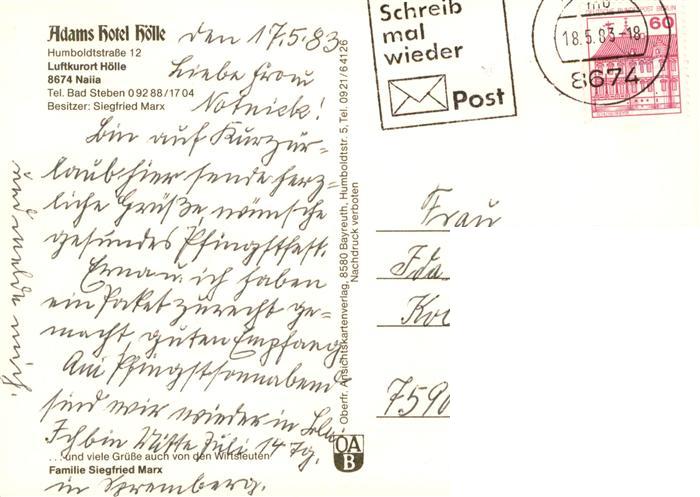 Adams Hotel Hölle
Humboldtstraße 12
Luftkurort Hölle
8674 Naila
Tel. Bad Steben 0 92 88 / 17 04
Besitzer: Siegfried Marx
den 17.5.83
Liebe Frau
Notnick!
Bin auf Kurzur-
laub hier sende herz-
liche Grüße, wünsche
gesundes Pfingstfest.
Erna u. ich haben
ein Paket zurecht ge-
macht, guten Empfang
Am Pfingstsonnabend
sind wir wieder in Bln.
Ich bin Mitte Juli 14 Tg.
in Spremberg.
und melde mich.
. . . und viele Grüße auch von den Wirtsleuten
Familie Siegfried Marx
Oberfr. Ansichtskartenverlag, 8580 Bayreuth, Humboldtstr. 5, Tel. 09 21 / 6 41 26
Nachdruck verboten
OA
B
Schreib
mal
wieder
Post
18.5.83-18
8674
DEUTSCHE BUNDESPOST BERLIN
60
Frau
Ida
759